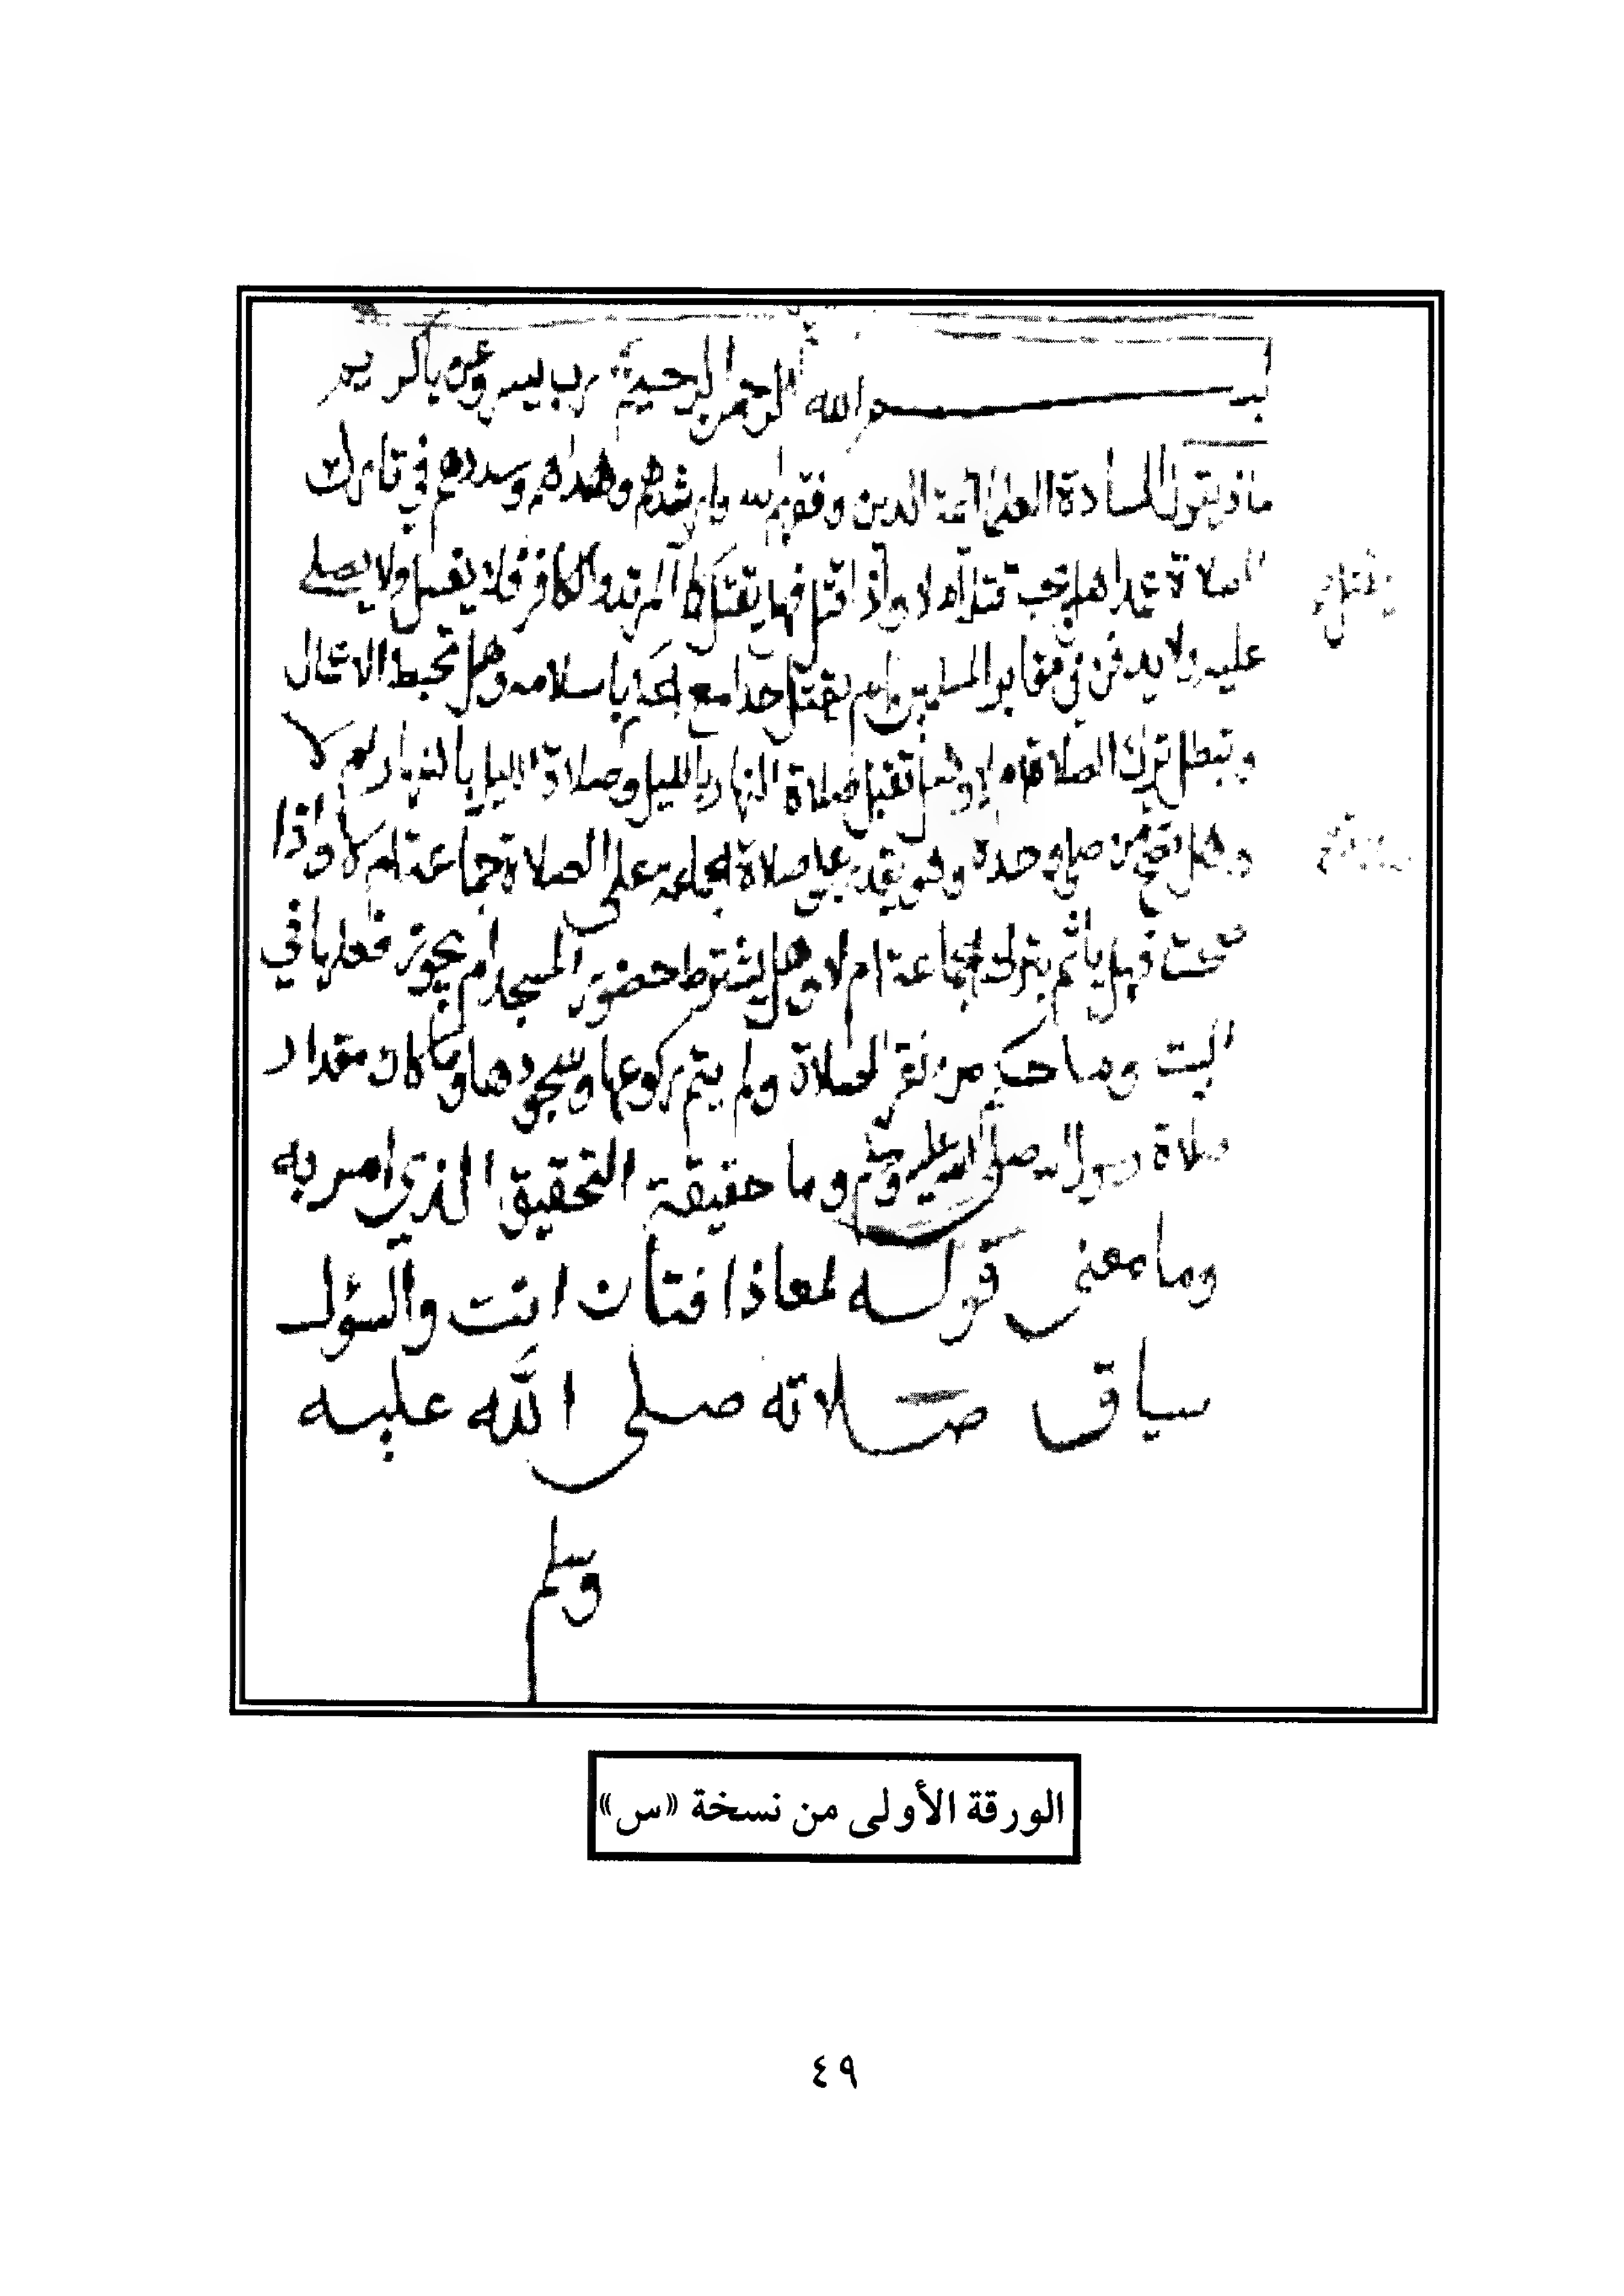 بسم الله الرحمن الرحيم رب يسر وعن ياكريم
ماذ يقول السادة العلما ائمة الدين وفقهم الله وارشدهم وهداهم وسددهم في تارك
الصلاة عمدا هل يجب قتله ام لا واذا قتل فهل يقتل كالمرتد والكافر فلا يغسل ولا يصلي
عليه ولا يدفن في مقابر المسلمين ام يقتل حدا مع الحكم باسلامه وهل تحبط الاعمال
وتبطل بترك الصلاة ام لا وهل تقبل صلاة النهار بالليل وصلاة الليل بالنهار ام لا
وهل تصح من صلى وحده وهو يقدر على صلاة الجماعة على الصلاة جماعة ام لا واذا
صحت فهل يأثم بترك الجماعة ام لا وهل يشترط حضور المسجد ام يجوز فعلها في
البيت وما حكم من نقر الصلاة ولم يتم ركوعها وسجودها وما كان مقدار
صلاة رسول الله صلى الله عليه وسلم وما حقيقة التحقيق الذي امر به
وما معنى قوله لمعاذ افتان انت والسؤل
سياق صلاته صلى الله عليه
وسلم
الورقة الأولى من نسخة «س»
٤٩